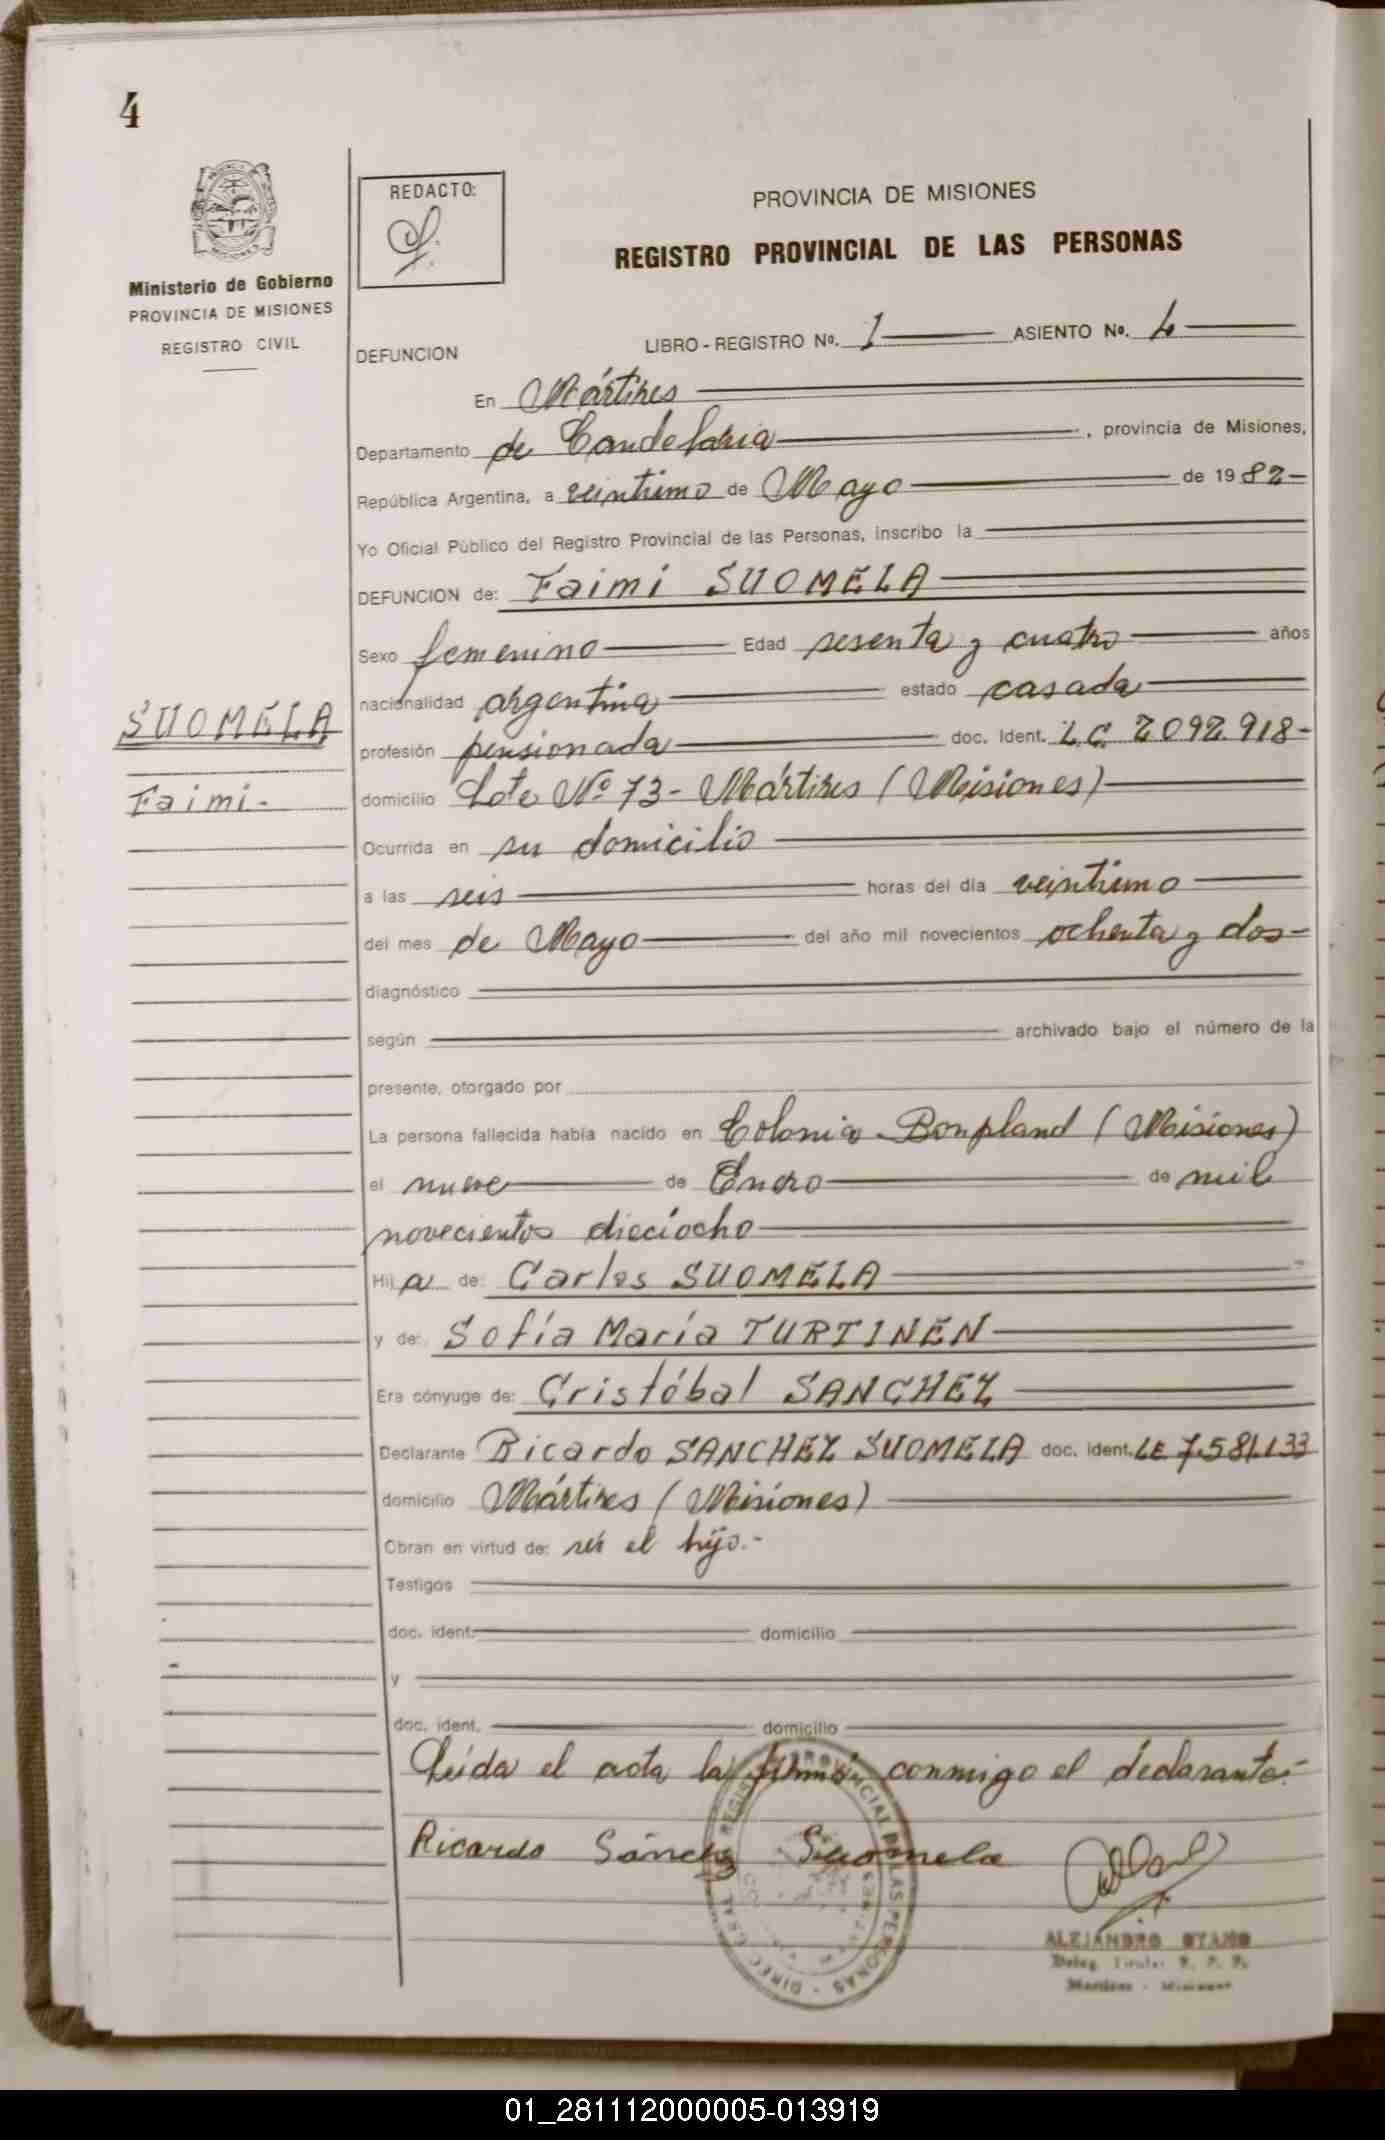 4
REDACTO:
PROVINCIA DE MISIONES
REGISTRO PROVINCIAL DE LAS PERSONAS
Ministerio de Gobierno
PROVINCIA DE MISIONES
REGISTRO CIVIL
DEFUNCION LIBRO - REGISTRO Nº. 1 ASIENTO Nº. 4
En Mártires
Departamento de Candelaria, provincia de Misiones,
República Argentina, a veintiuno de Mayo de 1982-
Yo Oficial Público del Registro Provincial de las Personas, inscribo la
DEFUNCION de: Faimi SUOMELA
Sexo femenino Edad sesenta y cuatro años
nacionalidad argentina estado casada
SUOMELA
profesión pensionada doc. Ident. L.C. 2.092.918-
Faimi.-
domicilio Lote Nº 73 - Mártires (Misiones)
Ocurrida en su domicilio
a las seis horas del día veintiuno
del mes de Mayo del año mil novecientos ochenta y dos-
diagnóstico
según archivado bajo el número de la
presente, otorgado por
La persona fallecida había nacido en Colonia Bonpland (Misiones)
el nueve de Enero de mil
novecientos dieciocho
Hij a de: Carlos SUOMELA
y de: Sofía María TURTINEN
Era cónyuge de: Cristóbal SANCHEZ
Declarante Ricardo SANCHEZ SUOMELA doc. ident. LE 7.581.133
domicilio Mártires (Misiones)
Obran en virtud de: ser el hijo.-
Testigos
doc. ident. domicilio
y
doc. ident. domicilio
Leída el acta la firmó conmigo el declarante.-
Ricardo Sánchez Suomela
ALEJANDRO STAHO
Deleg. Titular R. P. P.
Martires - Misiones
DIREC. GRAL. REGIS. PROVINCIAL DE LAS PERSONAS
01_281112000005-013919